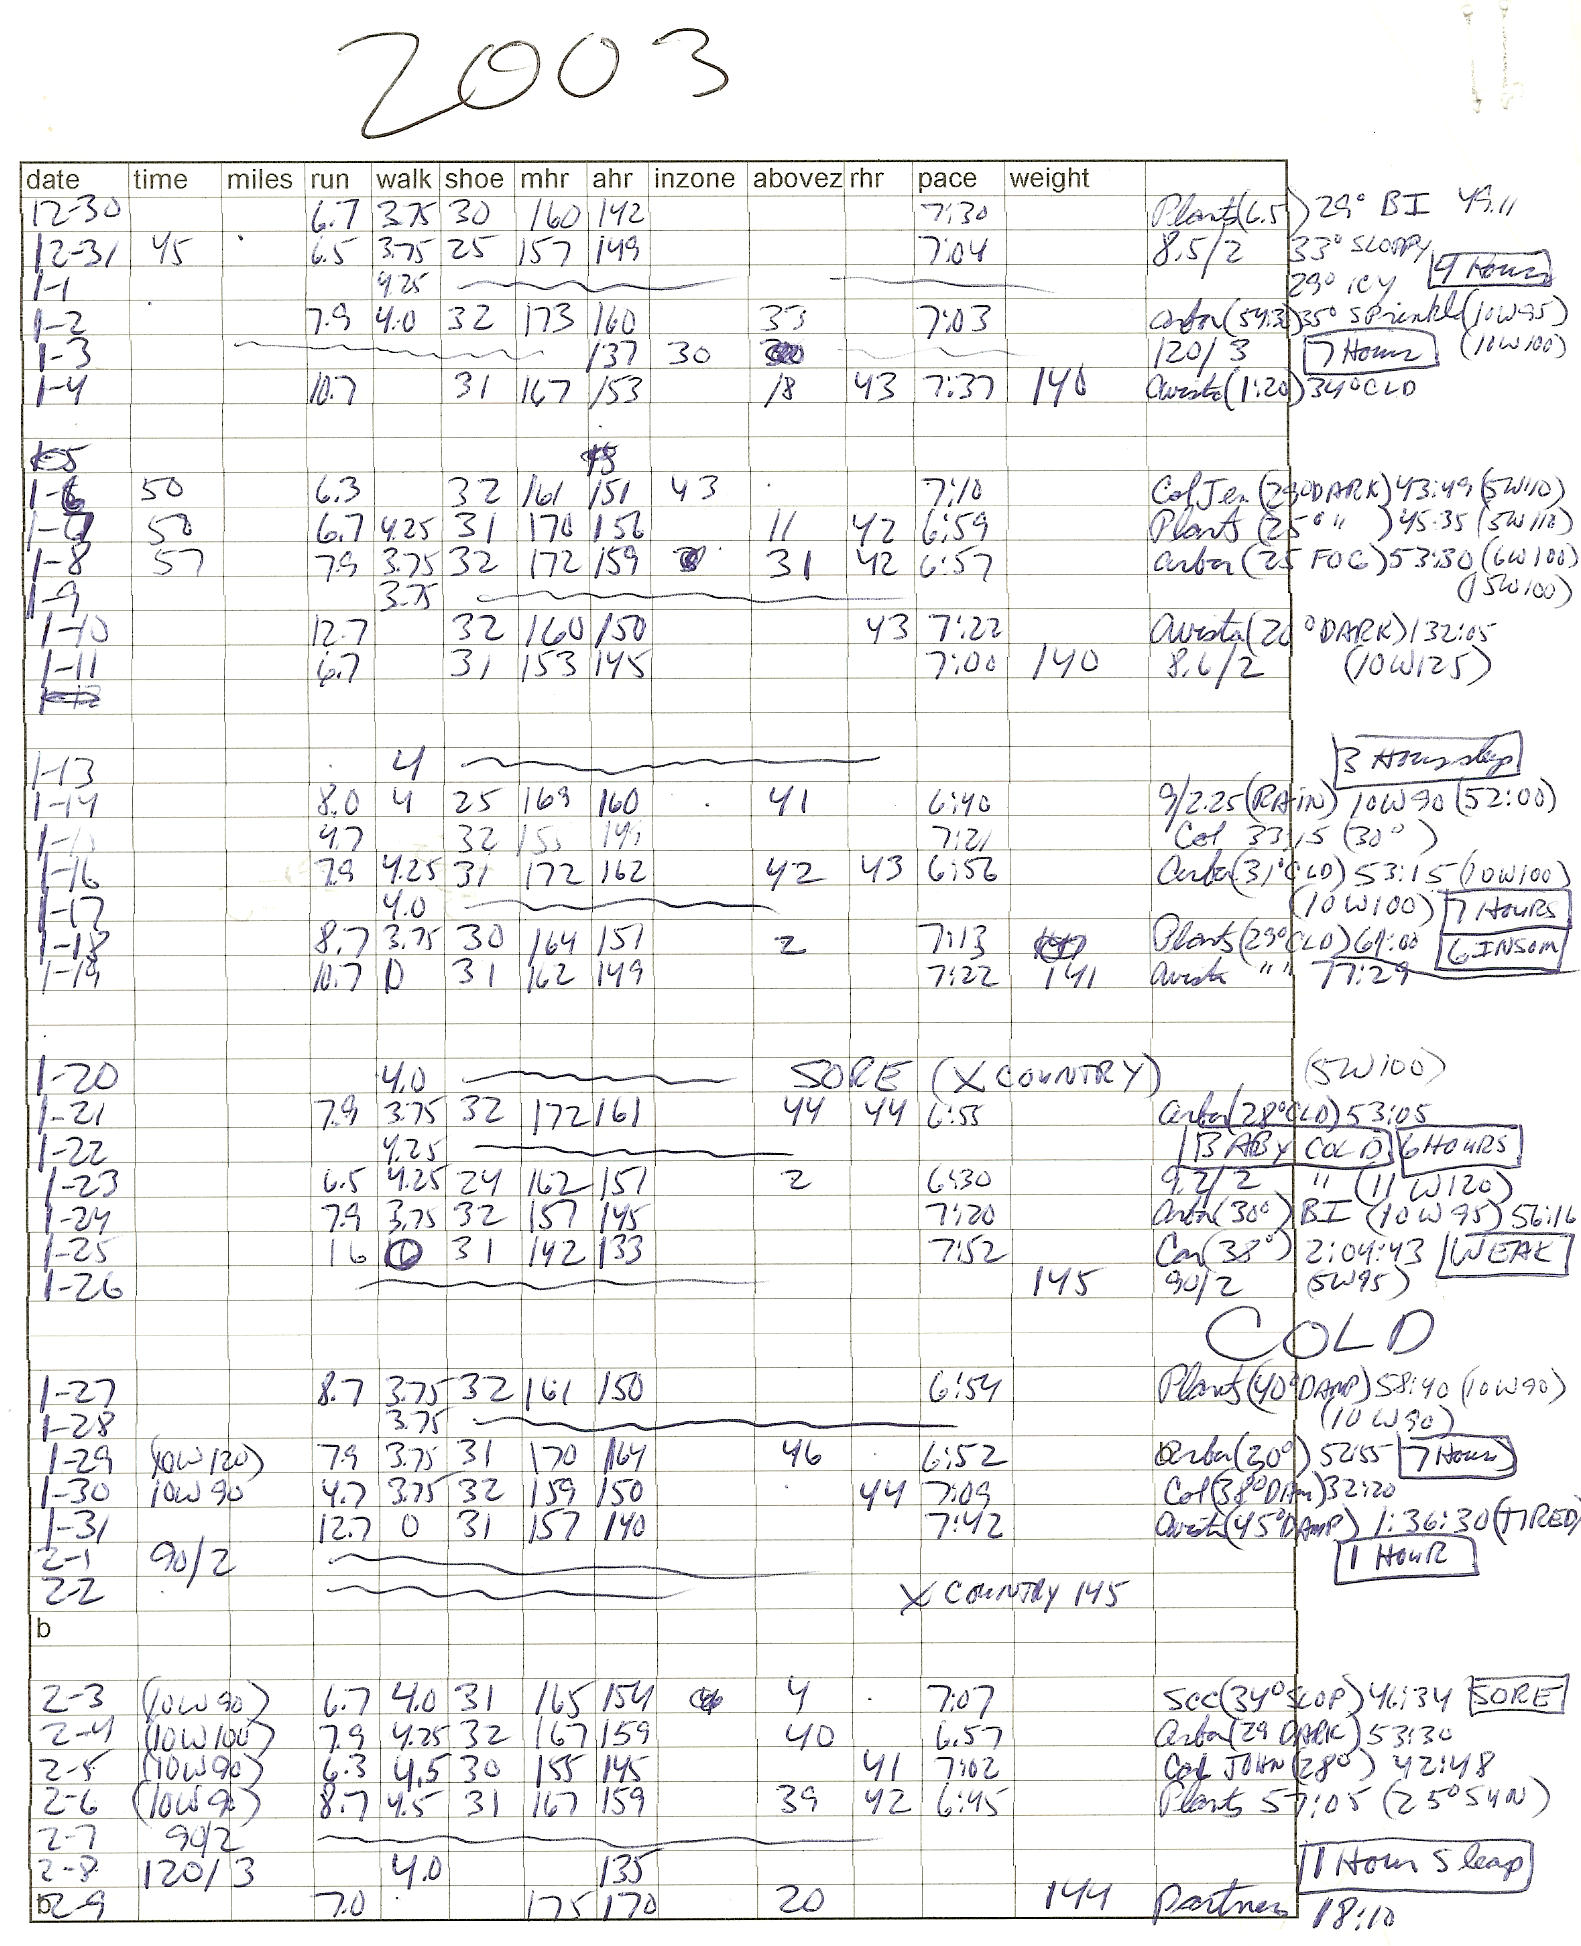 2003
date time miles run walk shoe mhr ahr inzone abovez rhr pace weight
12-30 6.7 3.75 30 160 142 7:30 Plants (6.5) 29° BI 49.11
12-31 45 6.5 3.75 25 157 149 7:04 8.5/2 33° SLOPPY
1-1 4.25 29° ICY 4 Hours
1-2 7.9 4.0 32 173 160 33 7:03 arbor 35° Sprinkle (10W95)
1-3 137 30 120/3 7 Hours (10W100)
1-4 10.7 31 167 153 18 43 7:37 140 avista (1:20) 34° CLD
1-6 50 6.3 32 161 151 43 7:10 Col Jen (29° DARK) 43:49 (5W110)
1-7 50 6.7 4.25 31 170 156 11 42 6:59 Plants (25° " ) 45:35 (5W110)
1-8 57 7.9 3.75 32 172 159 31 42 6:57 arbor (25 FOG) 53:30 (6W100)
1-9 3.75 (15W100)
1-10 12.7 32 160 150 43 7:22 avista (20° DARK) 132:05
1-11 6.7 31 153 145 7:00 140 8.6/2 (10W125)
1-13 4 3 Hours sleep
1-14 8.0 4 25 169 160 41 6:40 9/2.25 (RAIN) 10W90 (52:00)
4.7 32 7:21 Col 33:15 (30°)
1-16 7.9 4.25 31 172 162 42 43 6:56 arbor (31° CLD) 53:15 (10W100)
1-17 4.0 (10W100) 7 HOURS
1-18 8.7 3.75 30 164 151 2 7:13 Plants (29° CLD) 6 INSOM
1-19 10.7 0 31 162 149 7:22 141 avista " " 77:29
1-20 4.0 SORE (X COUNTRY) (5W100)
1-21 7.9 3.75 32 172 161 44 44 6:53 arbor (28° CLD) 53:05
1-22 4.25 BABY COLD 6 HOURS
1-23 6.5 4.25 24 162 151 2 6:30 9.2/2 " (11W120)
1-24 7.9 3.75 32 157 145 7:20 arbor (30°) BI (10W95) 56:16
1-25 16 0 31 142 133 7:52 Can (38°) 2:04:43 WEAK
1-26 145 90/2 (5W95)
COLD
1-27 8.7 3.75 32 161 150 6:54 Plants (40° DAMP) 58:40 (10W90)
1-28 3.75 (10W90)
1-29 (10W120) 7.9 3.75 31 170 164 46 6:52 arbor (30°) 52:55 7 Hours
1-30 10W90 4.7 3.75 32 159 150 44 7:09 Col (38° DAM) 32:20
1-31 12.7 0 31 157 140 7:42 avista (45° DAMP) 1:36:30 (TIRED)
2-1 90/2 1 HOUR
2-2 X COUNTRY 145
b
2-3 (10W90) 6.7 4.0 31 165 154 4 7:07 SCC (34° SLOP) 46:34 SORE
2-4 (10W100) 7.9 4.25 32 167 159 40 6:57 arbor (29 DARK) 53:30
2-5 (10W90) 6.3 4.5 30 155 145 41 7:02 Col JOHN (28°) 42:48
2-6 (10W90) 8.7 4.5 31 167 159 39 42 6:45 Plants 57:05 (25° SUN)
2-7 90/2
2-8 120/3 4.0 135 1 Hour Sleep
b 2-9 7.0 175 170 20 144 Partner 18:10